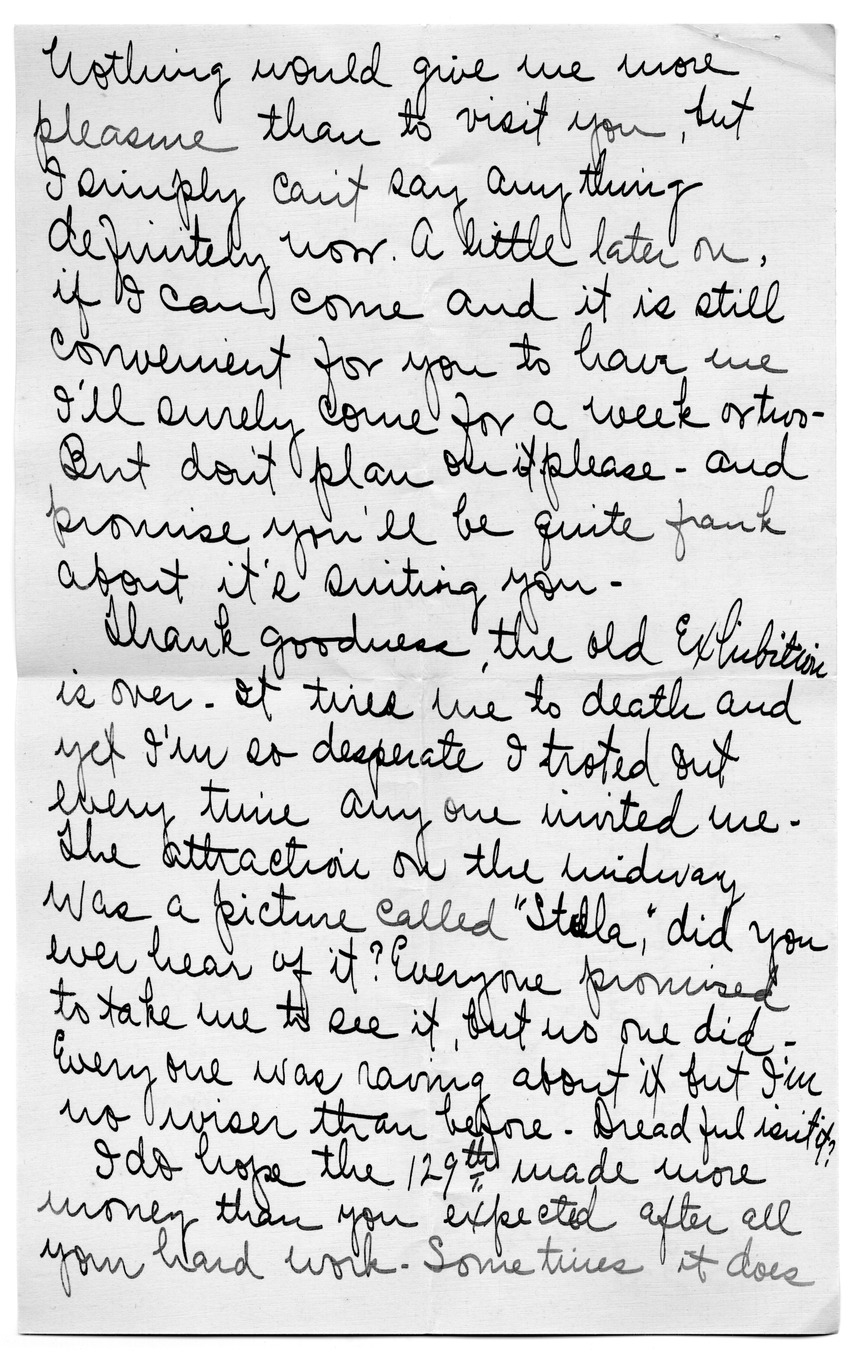 Nothing would give me more
pleasure than to visit you, but
I simply can't say anything
definitely now. A little later on,
if I can come and it is still
convenient for you to have me
I'll surely come for a week or two-
But don't plan on it please - and
promise you'll be quite frank
about it's suiting you -
Thank goodness, the old Exhibition
is over - It tires me to death and
yet I'm so desperate I troted out
every time any one invited me -
The attraction on the midway
was a picture called "Stella," did you
ever hear of it? Everyone promised
to take me to see it, but no one did -
Every one was raving about it but I'm
no wiser than before - Dreadful isn't it?
I do hope the 129th made more
money than you expected after all
your hard work - Sometimes it does